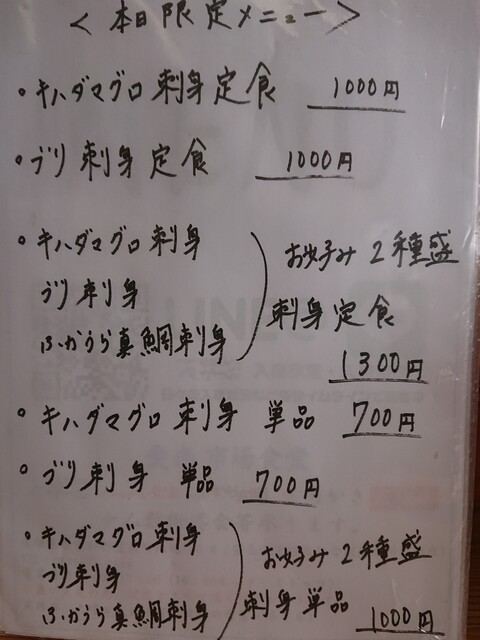 <本日限定メニュー>
・キハダマグロ刺身定食 1000円
・ブリ刺身定食 1000円
・キハダマグロ刺身
ブリ刺身
ふかうら真鯛刺身
お好み2種盛
刺身定食
1300円
・キハダマグロ刺身 単品 700円
・ブリ刺身 単品 700円
・キハダマグロ刺身
ブリ刺身
ふかうら真鯛刺身
お好み2種盛
刺身単品
1000円
LINE